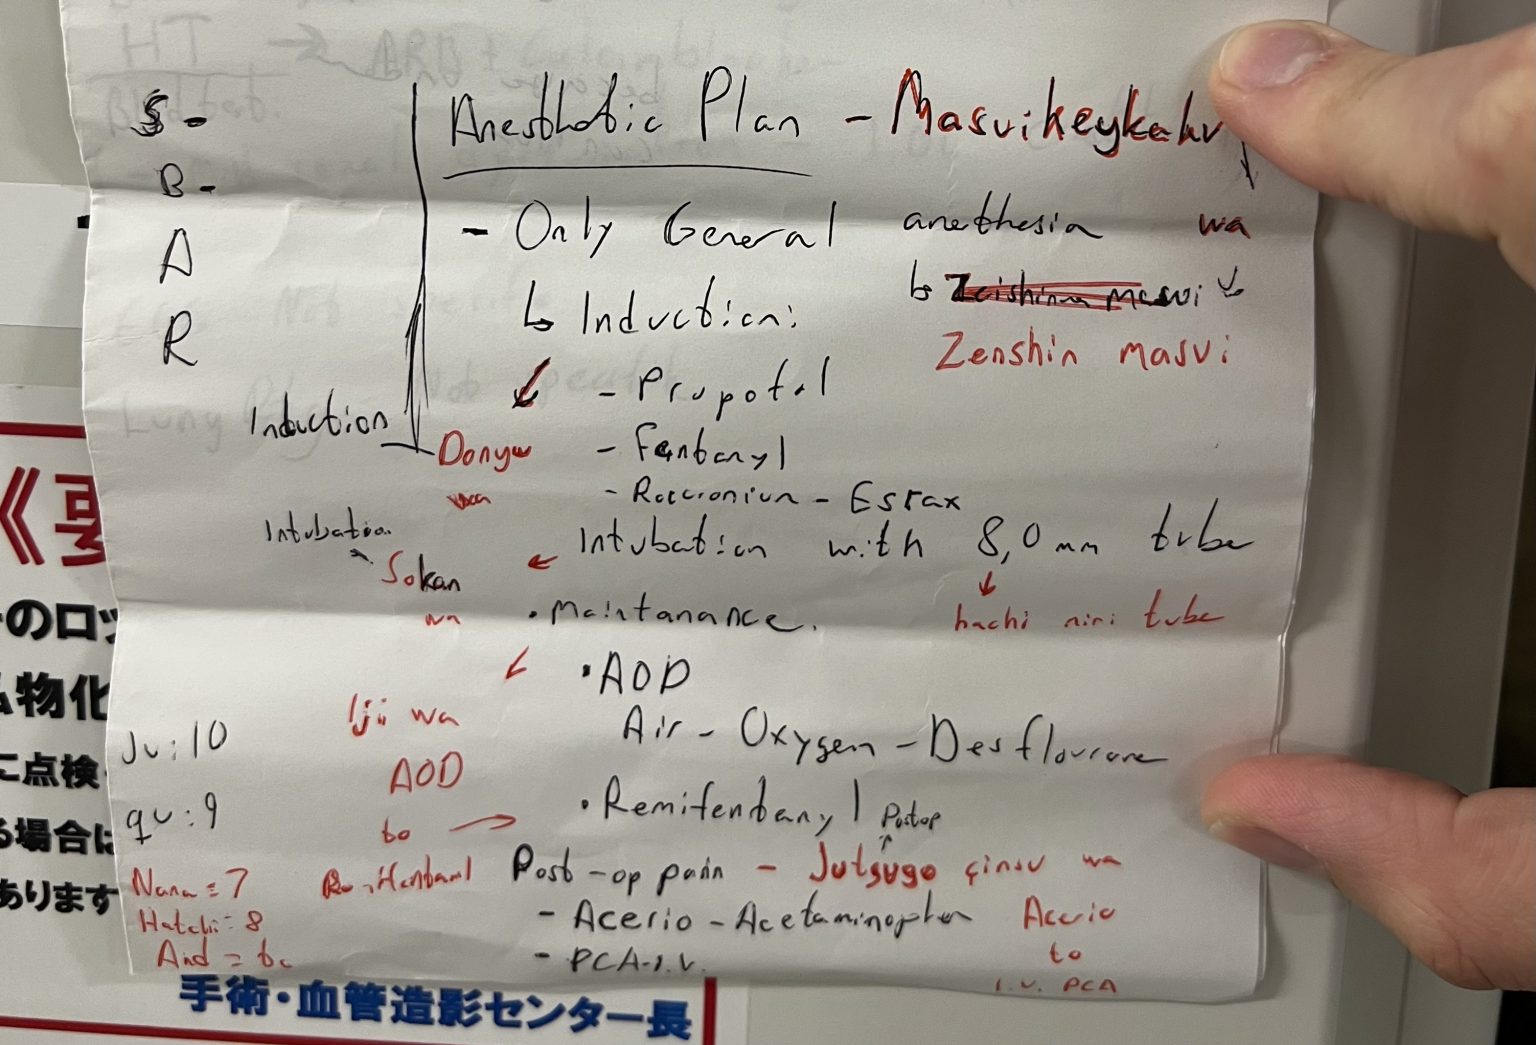 S-
B-
A
R
Anesthetic Plan - Masuikeykahu
- Only General anethesia wa
masui
Zenshin masui
↳ Induction:
- Propofol
Induction
Donyu
wa
- Fentanyl
- Rocuronium - Esrax
Intubation
Intubation with 8,0 mm tube
Sokan
wa
hachi miri tube
• Maintanance.
• AOD
Ijii wa
AOD
to
Air - Oxygen - Desflourane
Ju: 10
qu: 9
Nana = 7
Hatchi = 8
And = to
• Remifentanyl
Postop
Post-op pain - Jutsugo çinsu wa
- Acerio - Acetaminophen
Acerio
to
I.V. PCA
- PCA-I.V.
HT ← ARB +
《
のロッ
物化
に点検
る場合は
あります
手術・血管造影センター長